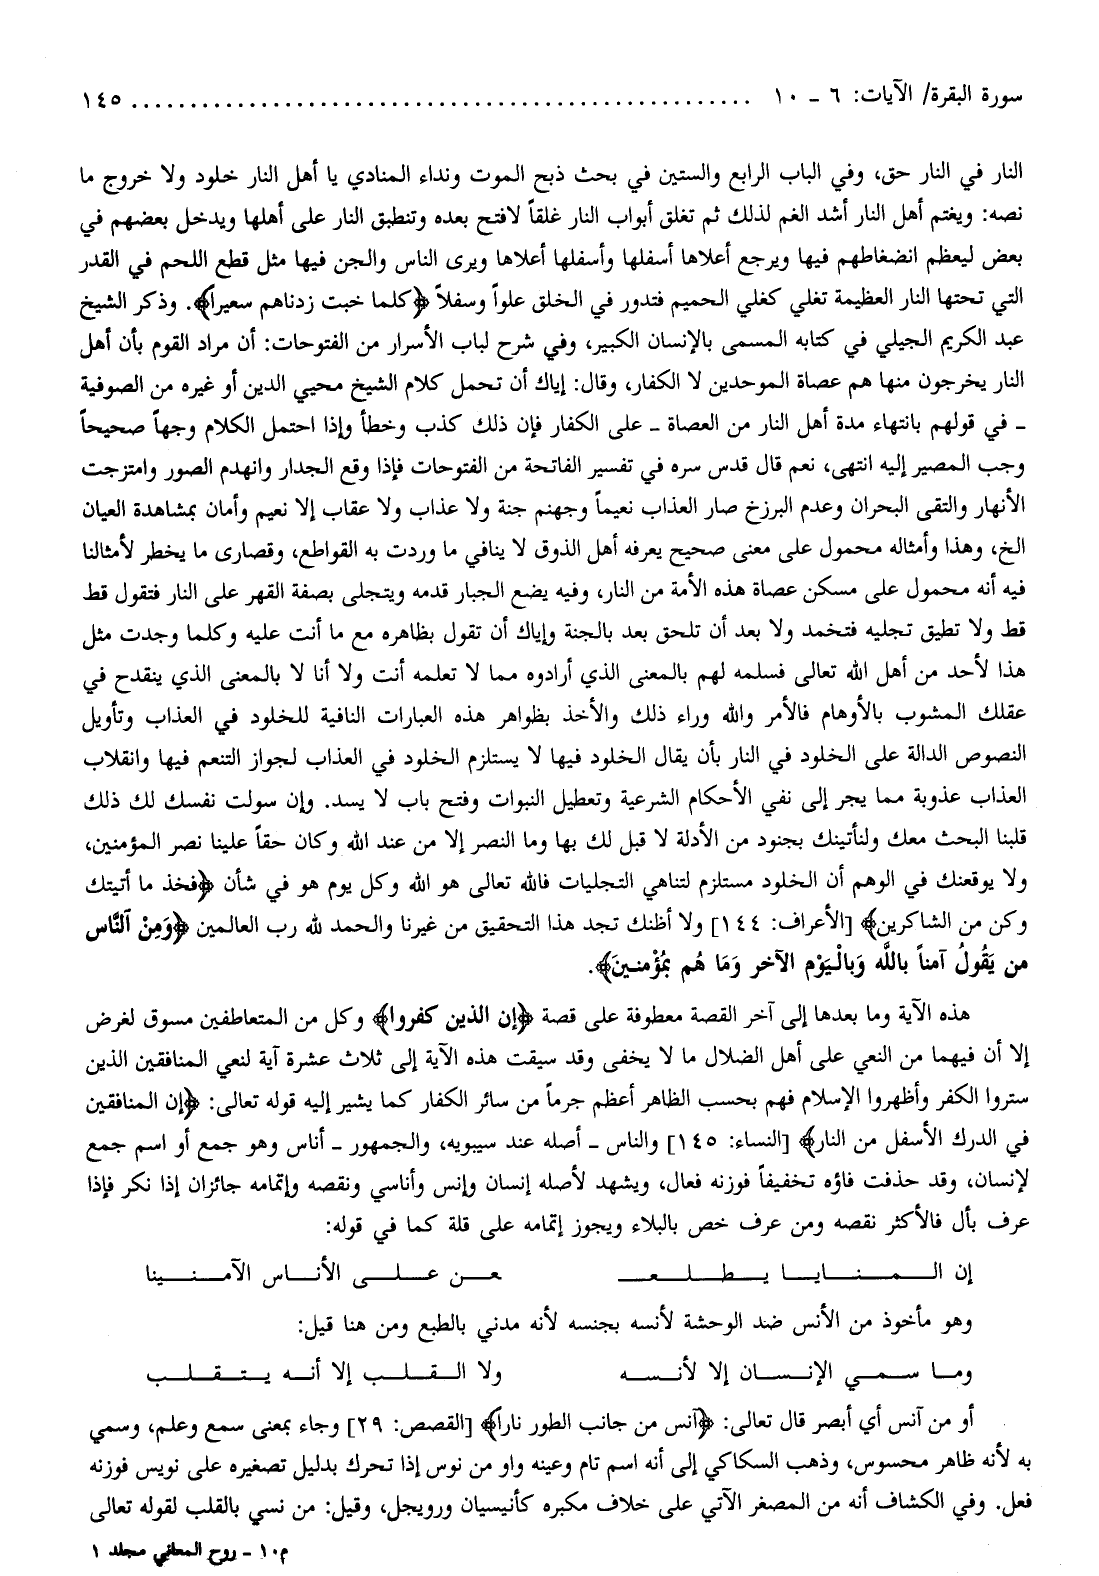 سورة البقرة/ الآيات: ٦ ـ ١٠ ..................................................... ١٤٥
النار في النار حق، وفي الباب الرابع والستين في بحث ذبح الموت ونداء المنادي يا أهل النار خلود ولا خروج ما
نصه: ويغتم أهل النار أشد الغم لذلك ثم تغلق أبواب النار غلقاً لافتح بعده وتنطبق النار على أهلها ويدخل بعضهم في
بعض ليعظم انضغاطهم فيها ويرجع أعلاها أسفلها وأسفلها أعلاها ويرى الناس والجن فيها مثل قطع اللحم في القدر
التي تحتها النار العظيمة تغلي كغلي الحميم فتدور في الخلق علواً وسفلاً ﴿كلما خبت زدناهم سعيراً﴾. وذكر الشيخ
عبد الكريم الجيلي في كتابه المسمى بالإنسان الكبير، وفي شرح لباب الأسرار من الفتوحات: أن مراد القوم بأن أهل
النار يخرجون منها هم عصاة الموحدين لا الكفار، وقال: إياك أن تحمل كلام الشيخ محيي الدين أو غيره من الصوفية
ـ في قولهم بانتهاء مدة أهل النار من العصاة ـ على الكفار فإن ذلك كذب وخطأ وإذا احتمل الكلام وجهاً صحيحاً
وجب المصير إليه انتهى، نعم قال قدس سره في تفسير الفاتحة من الفتوحات فإذا وقع الجدار وانهدم الصور وامتزجت
الأنهار والتقى البحران وعدم البرزخ صار العذاب نعيماً وجهنم جنة ولا عذاب ولا عقاب إلا نعيم وأمان بمشاهدة العيان
الخ، وهذا وأمثاله محمول على معنى صحيح يعرفه أهل الذوق لا ينافي ما وردت به القواطع، وقصارى ما يخطر لأمثالنا
فيه أنه محمول على مسكن عصاة هذه الأمة من النار، وفيه يضع الجبار قدمه ويتجلى بصفة القهر على النار فتقول قط
قط ولا تطيق تجليه فتخمد ولا بعد أن تلحق بعد بالجنة وإياك أن تقول بظاهره مع ما أنت عليه وكلما وجدت مثل
هذا لأحد من أهل الله تعالى فسلمه لهم بالمعنى الذي أرادوه مما لا تعلمه أنت ولا أنا لا بالمعنى الذي ينقدح في
عقلك المشوب بالأوهام فالأمر والله وراء ذلك والأخذ بظواهر هذه العبارات النافية للخلود في العذاب وتأويل
النصوص الدالة على الخلود في النار بأن يقال الخلود فيها لا يستلزم الخلود في العذاب لجواز التنعم فيها وانقلاب
العذاب عذوبة مما يجر إلى نفي الأحكام الشرعية وتعطيل النبوات وفتح باب لا يسد. وإن سولت نفسك لك ذلك
قلبنا البحث معك ولنأتينك بجنود من الأدلة لا قبل لك بها وما النصر إلا من عند الله وكان حقاً علينا نصر المؤمنين،
ولا يوقعنك في الوهم أن الخلود مستلزم لتناهي التجليات فالله تعالى هو الله وكل يوم هو في شأن ﴿فخذ ما أتيتك
وكن من الشاكرين﴾ [الأعراف: ١٤٤] ولا أظنك تجد هذا التحقيق من غيرنا والحمد لله رب العالمين ﴿وَمِنْ ٱلنَّاس
من يَقُولُ آمناً باللَّه وَبالْيَوْم الآخر وَمَا هُم بمُؤْمنـينَ﴾.
هذه الآية وما بعدها إلى آخر القصة معطوفة على قصة ﴿إن الذين كفروا﴾ وكل من المتعاطفين مسوق لغرض
إلا أن فيهما من النعي على أهل الضلال ما لا يخفى وقد سيقت هذه الآية إلى ثلاث عشرة آية لنعي المنافقين الذين
ستروا الكفر وأظهروا الإسلام فهم بحسب الظاهر أعظم جرماً من سائر الكفار كما يشير إليه قوله تعالى: ﴿إن المنافقين
في الدرك الأسفل من النار﴾ [النساء: ١٤٥] والناس ـ أصله عند سيبويه، والجمهور ـ أناس وهو جمع أو اسم جمع
لإنسان، وقد حذفت فاؤه تخفيفاً فوزنه فعال، ويشهد لأصله إنسان وإنس وأناسي ونقصه وإتمامه جائزان إذا نكر فإذا
عرف بأل فالأكثر نقصه ومن عرف خص بالبلاء ويجوز إتمامه على قلة كما في قوله:
إن المنايا يطلعـ ـعن على الأناس الآمنينا
وهو مأخوذ من الأنس ضد الوحشة لأنسه بجنسه لأنه مدني بالطبع ومن هنا قيل:
وما سمي الإنسان إلا لأنسه ولا القلب إلا أنه يتقلب
أو من آنس أي أبصر قال تعالى: ﴿آنس من جانب الطور ناراً﴾ [القصص: ٢٩] وجاء بمعنى سمع وعلم، وسمي
به لأنه ظاهر محسوس، وذهب السكاكي إلى أنه اسم تام وعينه واو من نوس إذا تحرك بدليل تصغيره على نويس فوزنه
فعل. وفي الكشاف أنه من المصغر الآتي على خلاف مكبره كأنيسيان ورويجل، وقيل: من نسي بالقلب لقوله تعالى
م١٠ ـ روح المعاني مجلد ١